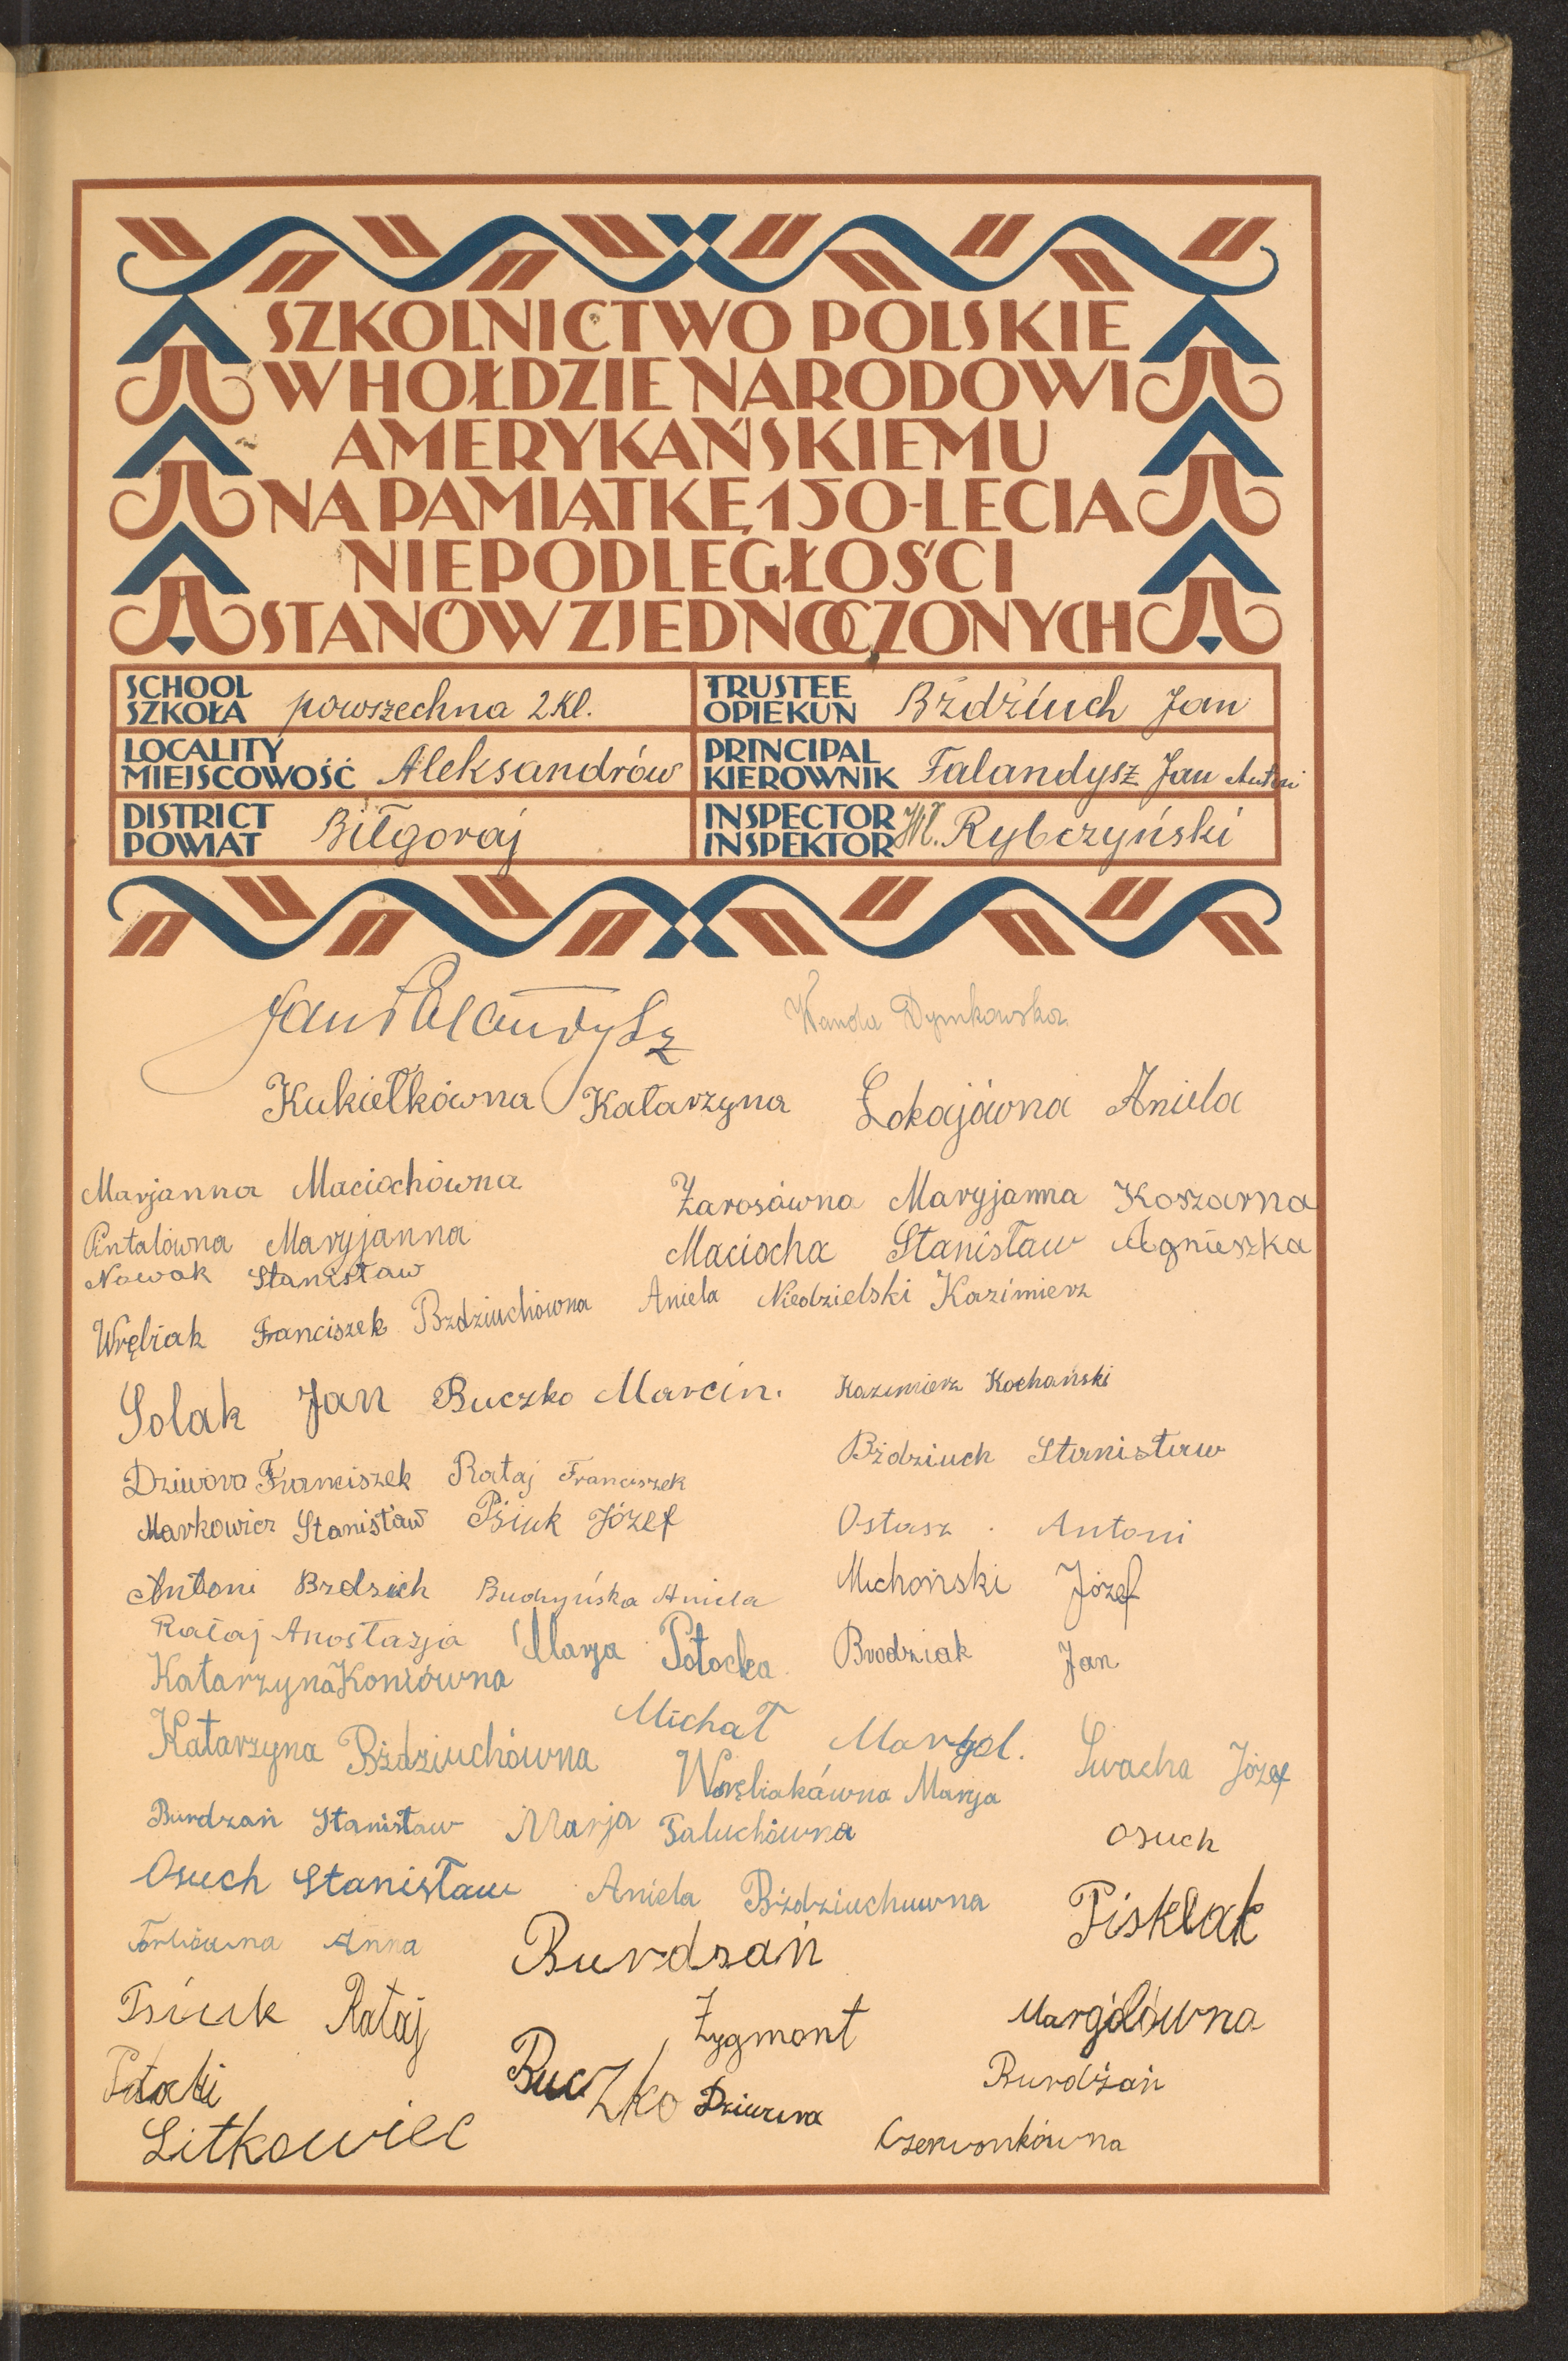 SZKOLNICTWO POLSKIE
W HOŁDZIE NARODOWI
AMERYKAŃSKIEMU
NA PAMIĄTKĘ 150-LECIA
NIEPODLEGŁOŚCI
STANÓW ZJEDNOCZONYCH
SCHOOL
SZKOŁA powszechna 2 Kl.
TRUSTEE
OPIEKUN Bździuch Jan
LOCALITY
MIEJSCOWOŚĆ Aleksandrów
PRINCIPAL
KIEROWNIK Falandysz Jan Antoni
DISTRICT
POWIAT Biłgoraj
INSPECTOR
INSPEKTOR Wł. Rybczyński
Jan Falandysz Wanda Dymkowska
Kukiełkówna Katarzyna Łokajówna Aniela
Marjanna Maciochówna
Żarosówna Maryjanna Koszarna
Antalówna Maryjanna
Maciocha Stanisław Agnieszka
Nowak Stanisław
Wrębiak Franciszek Bzdziuchówna Aniela Niedzielski Kazimierz
Solak Jan Buczko Marcin. Kazimierz Kochański
Bździuch Stanisław
Dziwóra Franciszek Rataj Franciszek
Markowicz Stanisław Psiuk Józef
Ostasz . Antoni
Antoni Bzdziuh Budzyńska Aniela
Michoński Józef
Rataj Anostazja Marja Potocka Brodziak Jan
Katarzyna Koniówna
Michał Margol. Swacha Józef
Katarzyna Bździuchówna
Wrębiakówna Marja
Burdzań Stanisław Marja Paluchówna
Osuch
Osuch Stanisław Aniela Bździuchuwna
Pisklak
Torbiówna Anna Burdzań
Psiuk Rataj Zygmont Margolówna
Potocki Buczko Dziwura Burdżań
Litkowiec Czerwonkówna